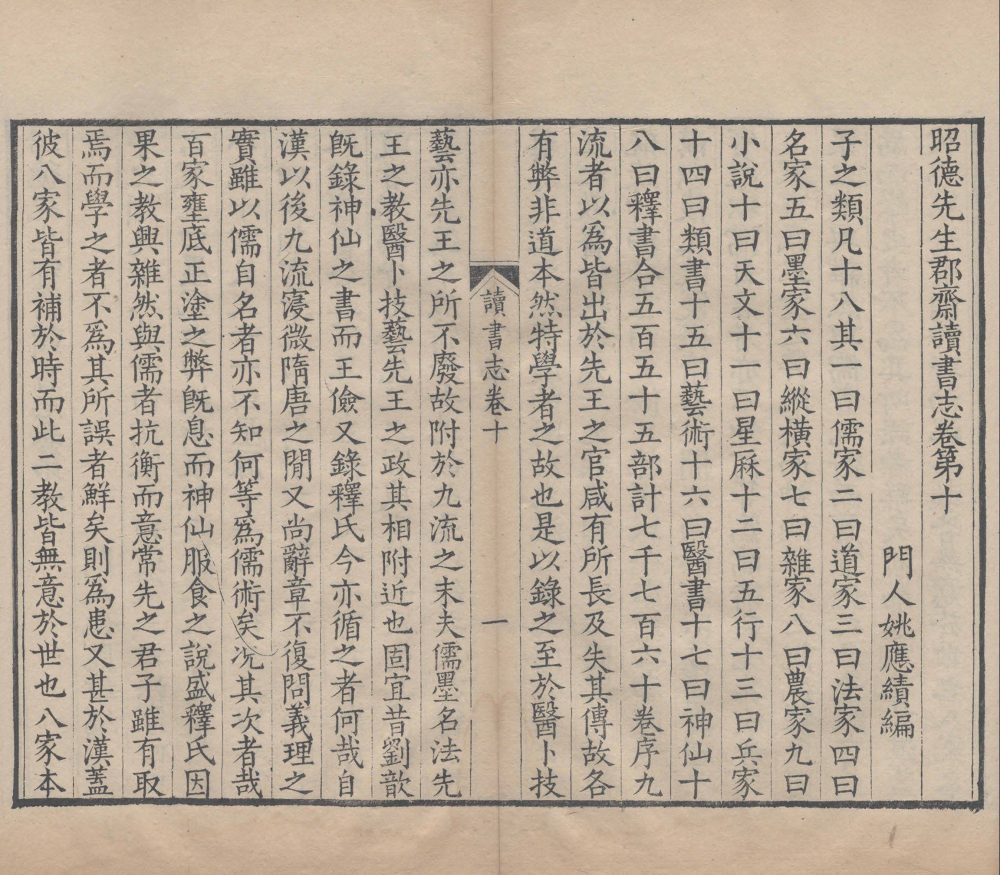 昭德先生郡齋讀書志卷第十
門人姚應績編
子之類凡十八其一曰儒家二曰道家三曰法家四曰
名家五曰墨家六曰縱橫家七曰雜家八曰農家九曰
小說十曰天文十一曰星厤十二曰五行十三曰兵家
十四曰類書十五曰藝術十六曰醫書十七曰神仙十
八曰釋書合五百五十五部計七千七百六十卷序九
流者以為皆出於先王之官咸有所長及失其傳故各
有弊非道本然特學者之故也是以錄之至於醫卜技
讀書志卷十
一
藝亦先王之所不廢故附於九流之末夫儒墨名法先
王之教醫卜技藝先王之政其相附近也固宜昔劉歆
旣錄神仙之書而王儉又錄釋氏今亦循之者何哉自
漢以後九流寖微隋唐之閒又尚辭章不復問義理之
實雖以儒自名者亦不知何等爲儒術矣況其次者哉
百家壅底正塗之弊旣息而神仙服食之說盛釋氏因
果之教興雜然與儒者抗衡而意常先之君子雖有取
焉而學之者不爲其所誤者鮮矣則爲患又甚於漢蓋
彼八家皆有補於時而此二教皆無意於世也八家本